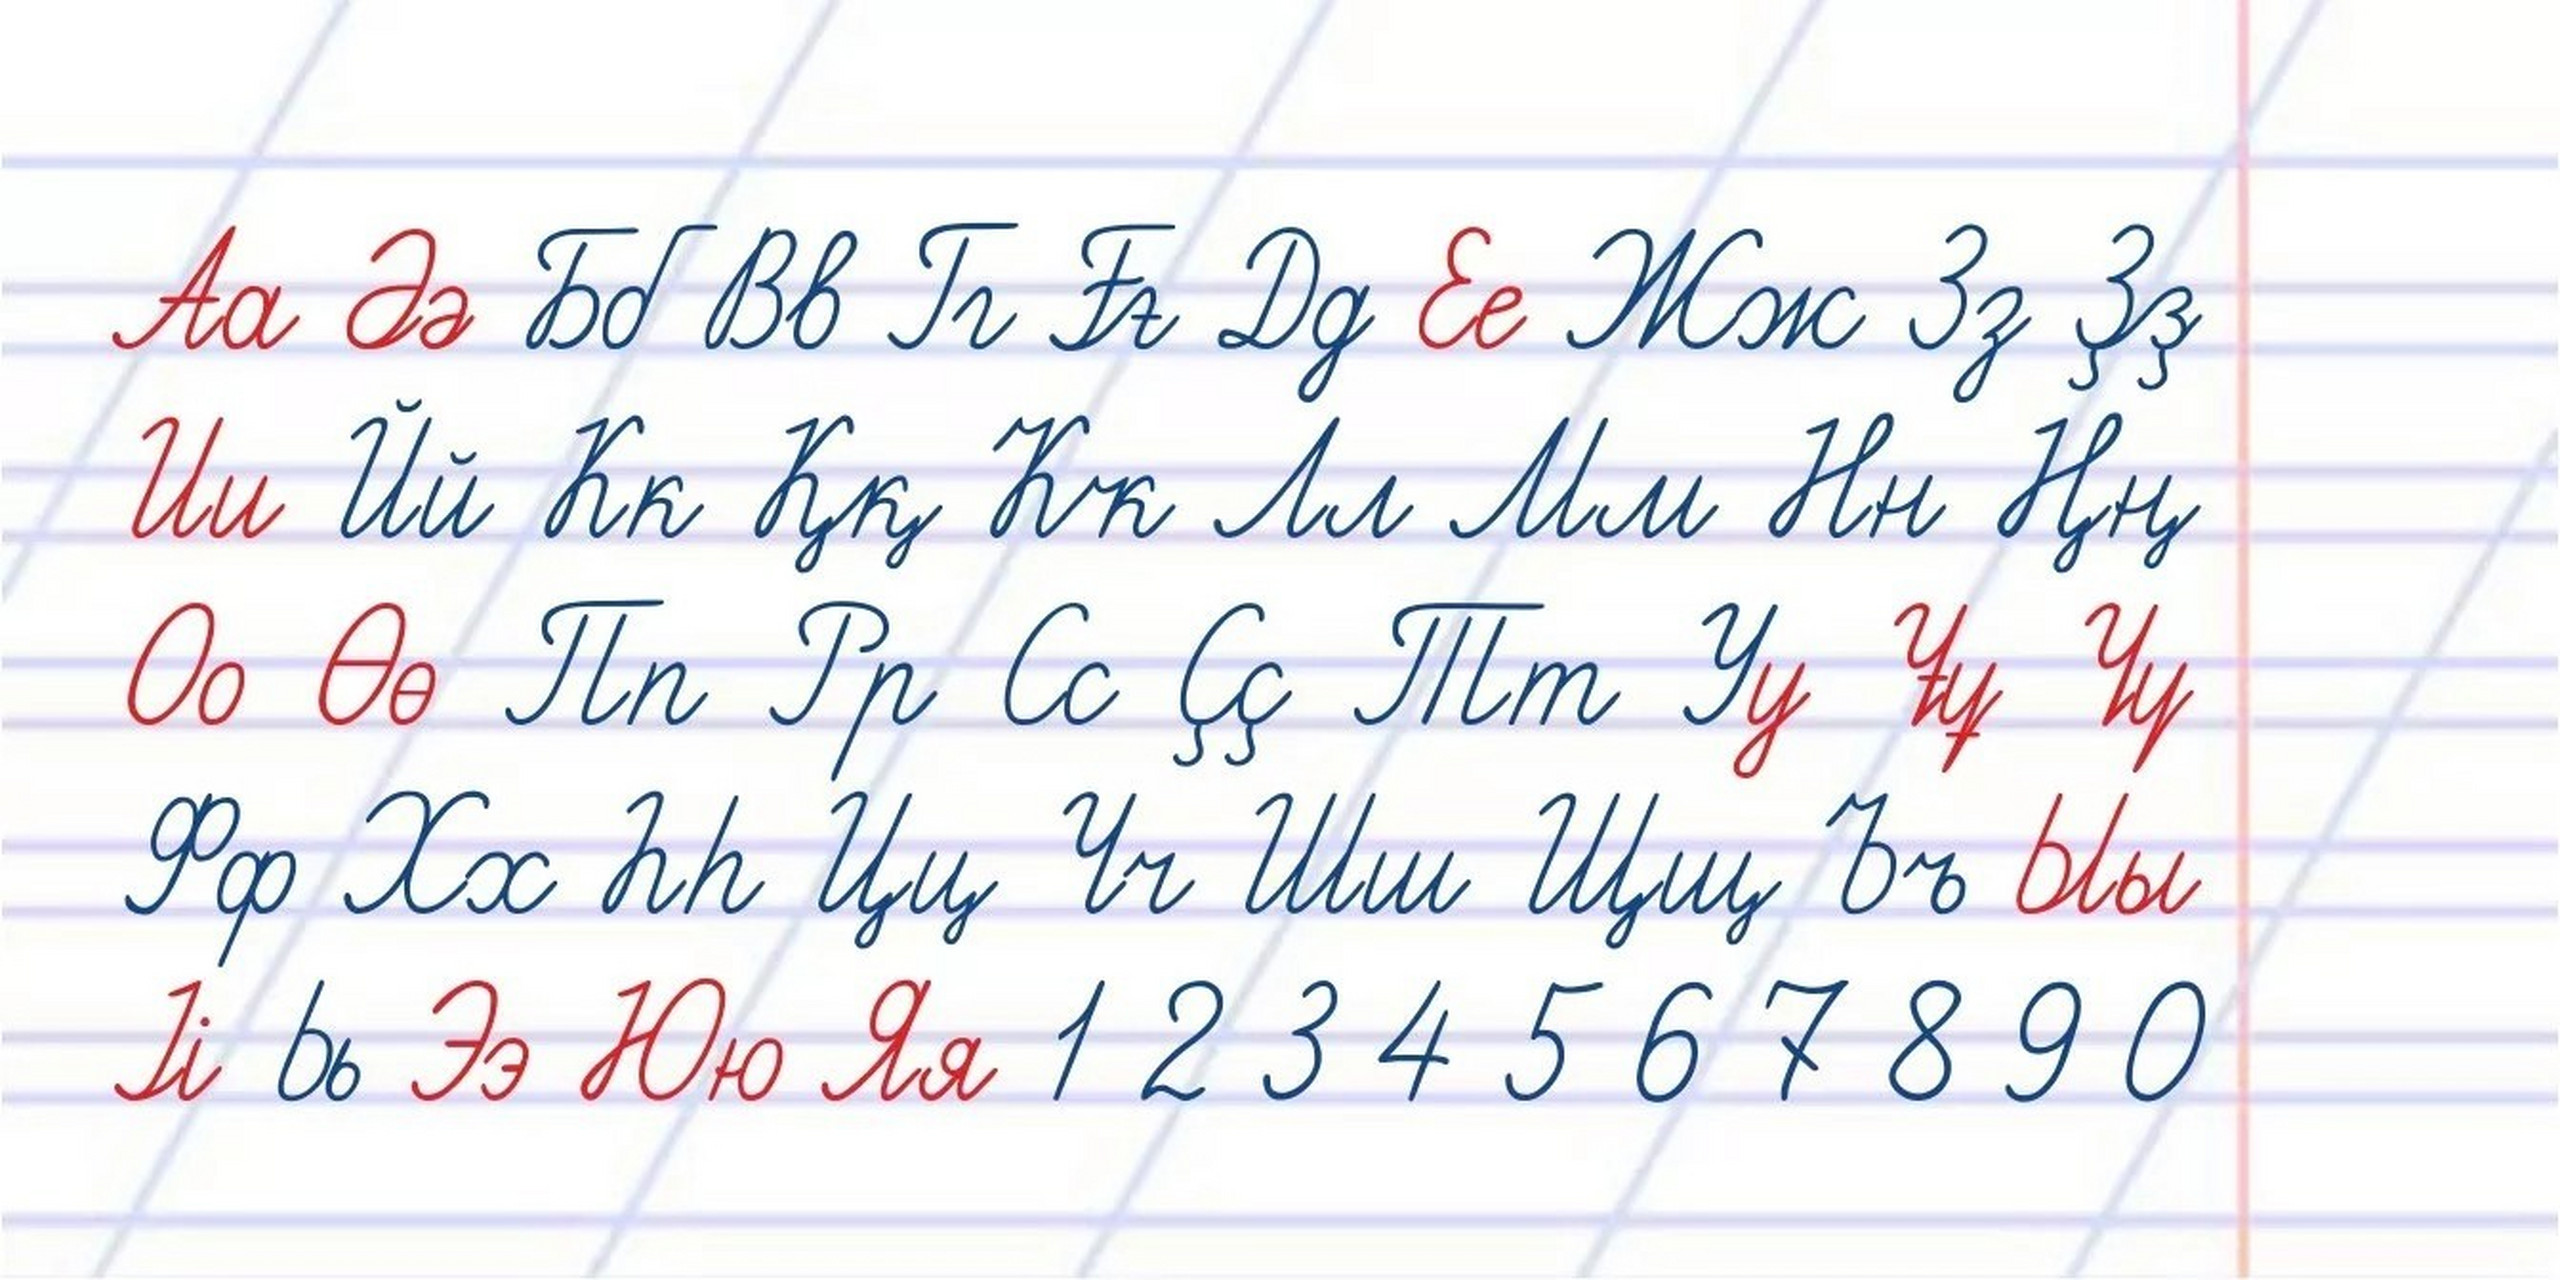 Аа Әә Бб Вв Гг Ғғ Дд Ее Жж Зз Ҙҙ
Ии Йй Кк Ққ Ҡҡ Лл Мм Нн Ңң
Оо Өө Пп Рр Сс Ҫҫ Тт Уу Ұұ Үү
Фф Хх Һһ Цц Чч Шш Щщ Ъъ Ыы
Іі Ьь Ээ Юю Яя 1 2 3 4 5 6 7 8 9 0